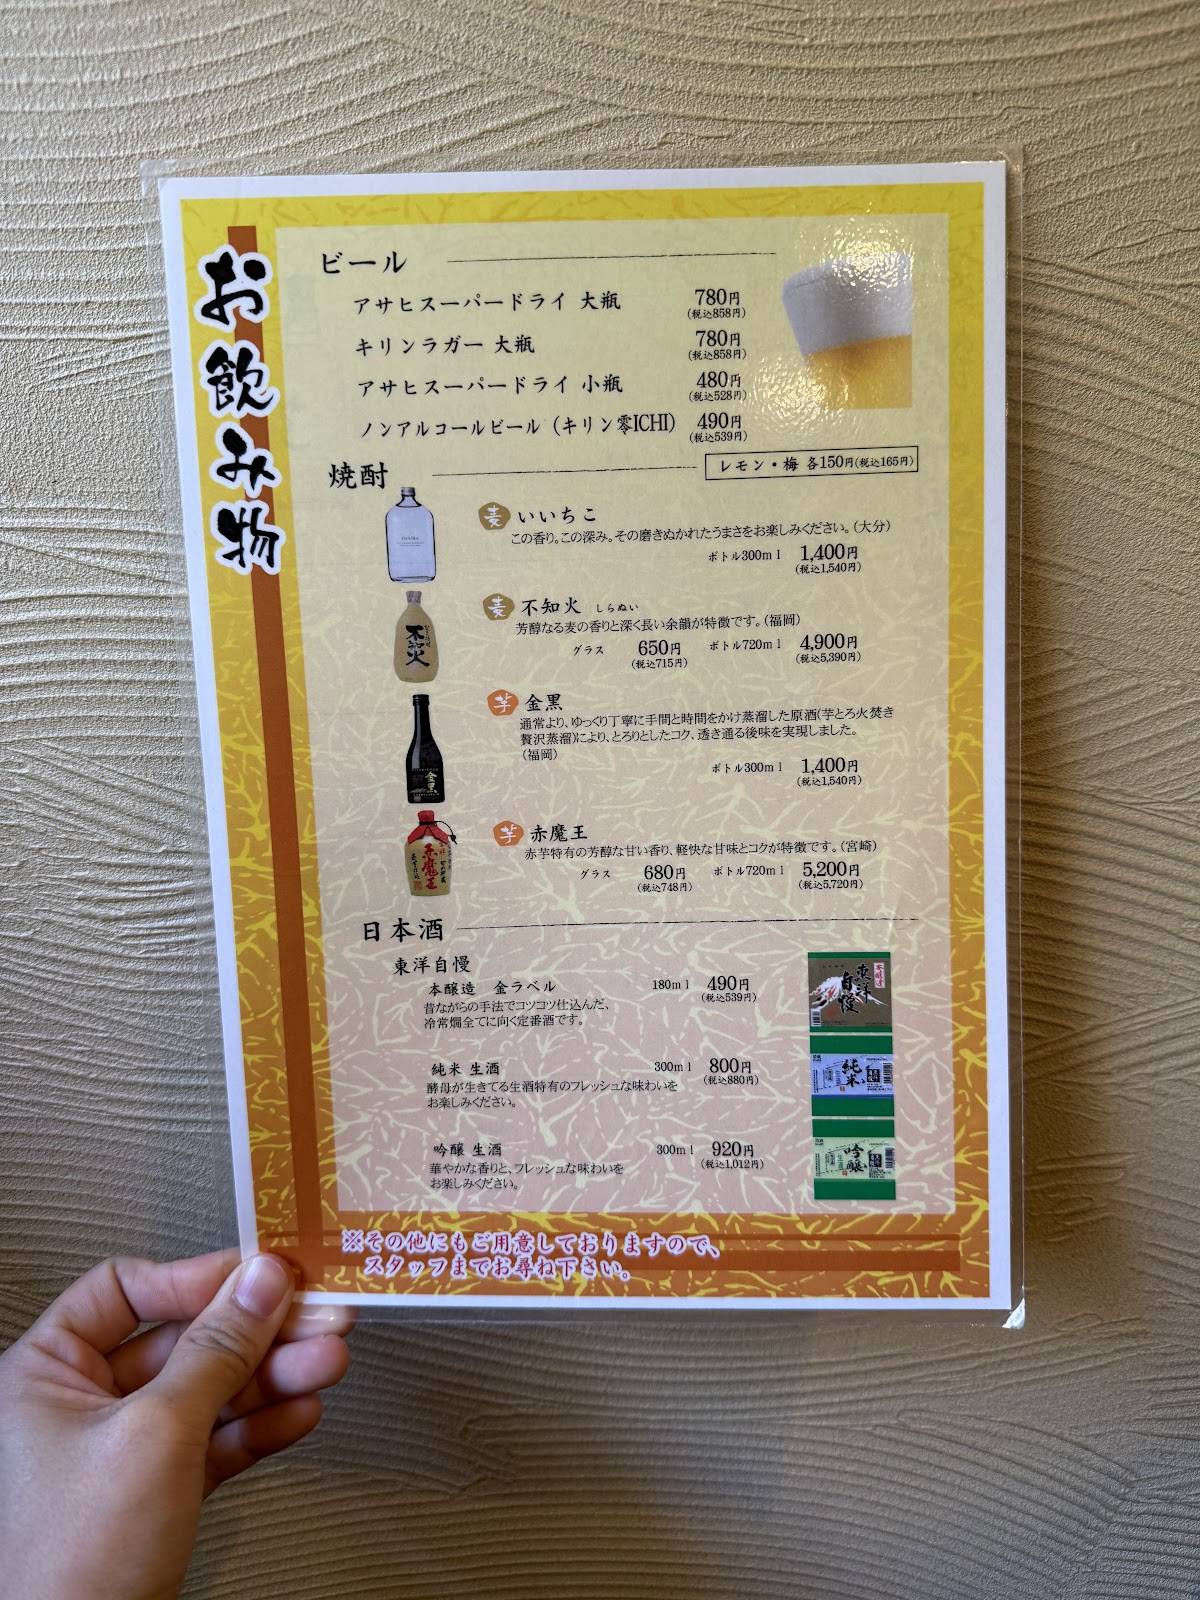 お飲み物
ビール
アサヒスーパードライ 大瓶 780円
(税込858円)
キリンラガー 大瓶 780円
(税込858円)
アサヒスーパードライ 小瓶 480円
(税込528円)
ノンアルコールビール (キリン零ICHI) 490円
(税込539円)
焼酎
レモン・梅 各150円(税込165円)
麦 いいちこ
この香り。この深み。その磨きぬかれたうまさをお楽しみください。(大分)
ボトル300ml 1,400円
(税込1,540円)
麦 不知火 しらぬい
芳醇なる麦の香りと深く長い余韻が特徴です。(福岡)
グラス 650円 ボトル720ml 4,900円
(税込715円) (税込5,390円)
芋 金黒
通常より、ゆっくり丁寧に手間と時間をかけ蒸溜した原酒(芋とろ火焚き
贅沢蒸溜)により、とろりとしたコク、透き通る後味を実現しました。
(福岡)
ボトル300ml 1,400円
(税込1,540円)
芋 赤魔王
赤芋特有の芳醇な甘い香り、軽快な甘味とコクが特徴です。(宮崎)
グラス 680円 ボトル720ml 5,200円
(税込748円) (税込5,720円)
不知火
金黒
赤魔王
日本酒
東洋自慢
本醸造 金ラベル 180ml 490円
(税込539円)
昔ながらの手法でコツコツ仕込んだ、
冷常燗全てに向く定番酒です。
純米 生酒 300ml 800円
(税込880円)
酵母が生きてる生酒特有のフレッシュな味わいを
お楽しみください。
吟醸 生酒 300ml 920円
(税込1,012円)
華やかな香りと、フレッシュな味わいを
お楽しみください。
本醸造
東洋
自慢
純米
吟醸
※その他にもご用意しておりますので、
スタッフまでお尋ね下さい。